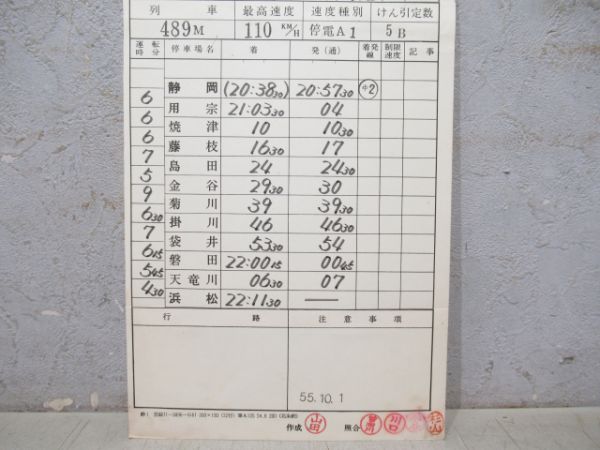 列車 最高速度 速度種別 けん引定数
489M 110 KM/H 停電A1 5B
運転時分 停車場名 着 発(通) 着発線 制限速度 記事
静岡 (20:38 30) 20:57 30 中2
6 用宗 21:03 30 04
6 焼津 10 10 30
6 藤枝 16 30 17
7 島田 24 24 30
5 金谷 29 30 30
9 菊川 39 39 30
6 30 掛川 46 46 30
7 袋井 53 30 54
6 15 磐田 22:00 15 00 45
5 45 天竜川 06 30 07
4 30 浜松 22:11 30 ―
行路 注意事項
55.10.1
作成 山田 照合